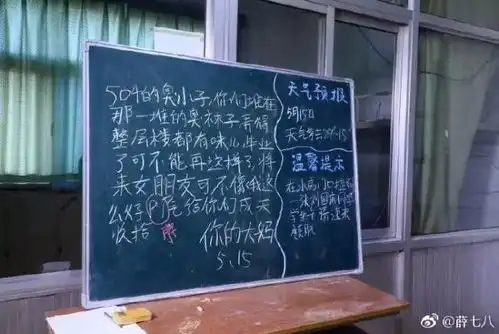 504的臭小子,你们堆在
那一堆的臭袜子弄得
整层楼都有味儿,毕业
了可不能再这样了,将
来女朋友可不像我这
么好P气给你们成天
收拾
你的大妈
5、15
天气预报
5月15日
天气
温馨提示
在小
领取
@薛七八